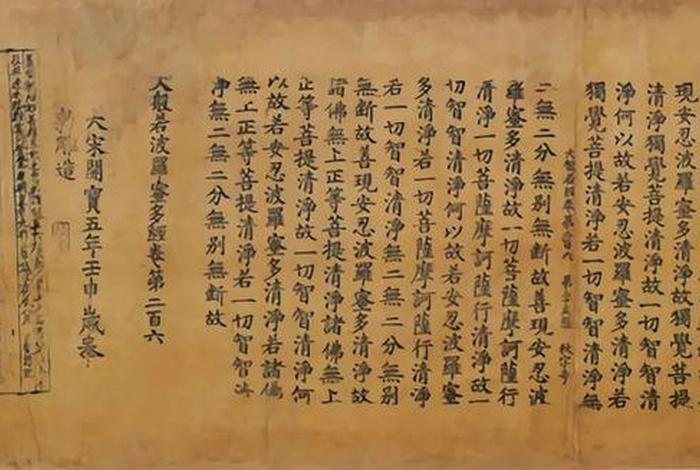 現安忍波羅蜜多清淨故獨覺菩提
清淨獨覺菩提清淨故一切智智清
淨何以故若安忍波羅蜜多清淨若
獨覺菩提清淨若一切智智清淨無
二無二分無別無斷故善現安忍波
羅蜜多清淨故一切菩薩摩訶薩行
清淨一切菩薩摩訶薩行清淨故一
切智智清淨何以故若安忍波羅蜜
多清淨若一切菩薩摩訶薩行清淨
若一切智智清淨無二無二分無別
無斷故善現安忍波羅蜜多清淨故
諸佛無上正等菩提清淨諸佛無上
正等菩提清淨故一切智智清淨何
以故若安忍波羅蜜多清淨若諸佛
無上正等菩提清淨若一切智智清
淨無二無二分無別無斷故
大般若波羅蜜多經卷第二百六
大宋開寶五年壬申歲奉
勅雕造